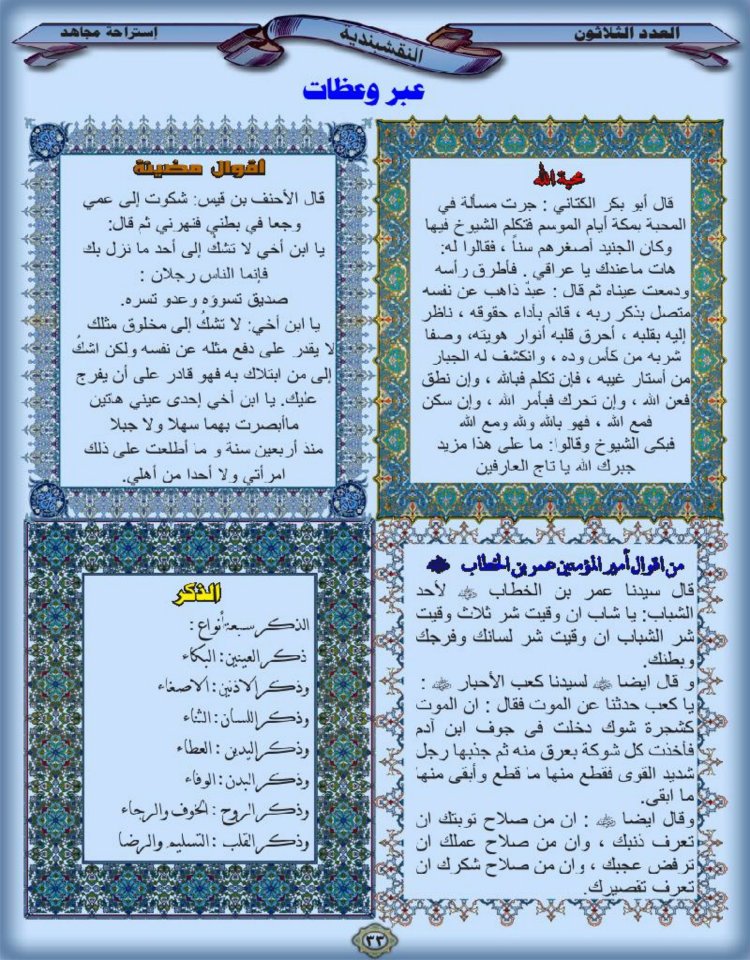 العدد الثلاثون
النقشبندية
إستراحة مجاهد
عبر وعظات
محبة الله
قال أبو بكر الكتاني : جرت مسألة في
المحبة بمكة أيام الموسم فتكلم الشيوخ فيها
وكان الجنيد أصغرهم سناً ، فقالوا له:
هات ماعندك يا عراقي . فأطرق رأسه
ودمعت عيناه ثم قال : عبدٌ ذاهب عن نفسه
متصل بذكر ربه ، قائم بأداء حقوقه ، ناظر
إليه بقلبه ، أحرق قلبه أنوار هويته، وصفا
شربه من كأس وده ، وانكشف له الجبار
من أستار غيبه ، فإن تكلم فبالله ، وإن نطق
فعن الله ، وإن تحرك فبأمر الله ، وإن سكن
فمع الله ، فهو بالله ولله ومع الله
فبكى الشيوخ وقالوا: ما على هذا مزيد
جبرك الله يا تاج العارفين
اقوال مضيئة
قال الأحنف بن قيس: شكوت إلى عمي
وجعا في بطني فنهرني ثم قال:
يا ابن أخي لا تشك إلى أحد ما نزل بك
فإنما الناس رجلان :
صديق تسوؤه وعدو تسره.
يا ابن أخي: لا تشكُ إلى مخلوق مثلك
لا يقدر على دفع مثله عن نفسه ولكن اشكُ
إلى من ابتلاك به فهو قادر على أن يفرج
عليك. يا ابن أخي إحدى عيني هتين
ماأبصرت بهما سهلا ولا جبلا
منذ أربعين سنة و ما أطلعت على ذلك
امرأتي ولا أحدا من أهلي.
من اقوال أمير المؤمنين عمر بن الخطاب
قال سيدنا عمر بن الخطاب لأحد
الشباب: يا شاب ان وقيت شر ثلاث وقيت
شر الشباب ان وقيت شر لسانك وفرجك
وبطنك.
و قال ايضا لسيدنا كعب الأحبار :
يا كعب حدثنا عن الموت فقال : ان الموت
كشجرة شوك دخلت في جوف ابن آدم
فأخذت كل شوكة بعرق منه ثم جذبها رجل
شديد القوى فقطع منها ما قطع وأبقى منها
ما ابقى.
وقال ايضا : ان من صلاح توبتك ان
تعرف ذنبك ، وان من صلاح عملك ان
ترفض عجبك ، وان من صلاح شكرك ان
تعرف تقصيرك.
الذكر
الذكر سبعة أنواع :
ذكر العينين : البكاء
وذكر الاذنين : الاصغاء
وذكر اللسان : الثناء
وذكر اليدين : العطاء
وذكر البدن : الوفاء
وذكر الروح : الخوف والرجاء
وذكر القلب : التسليم والرضا
٣٣